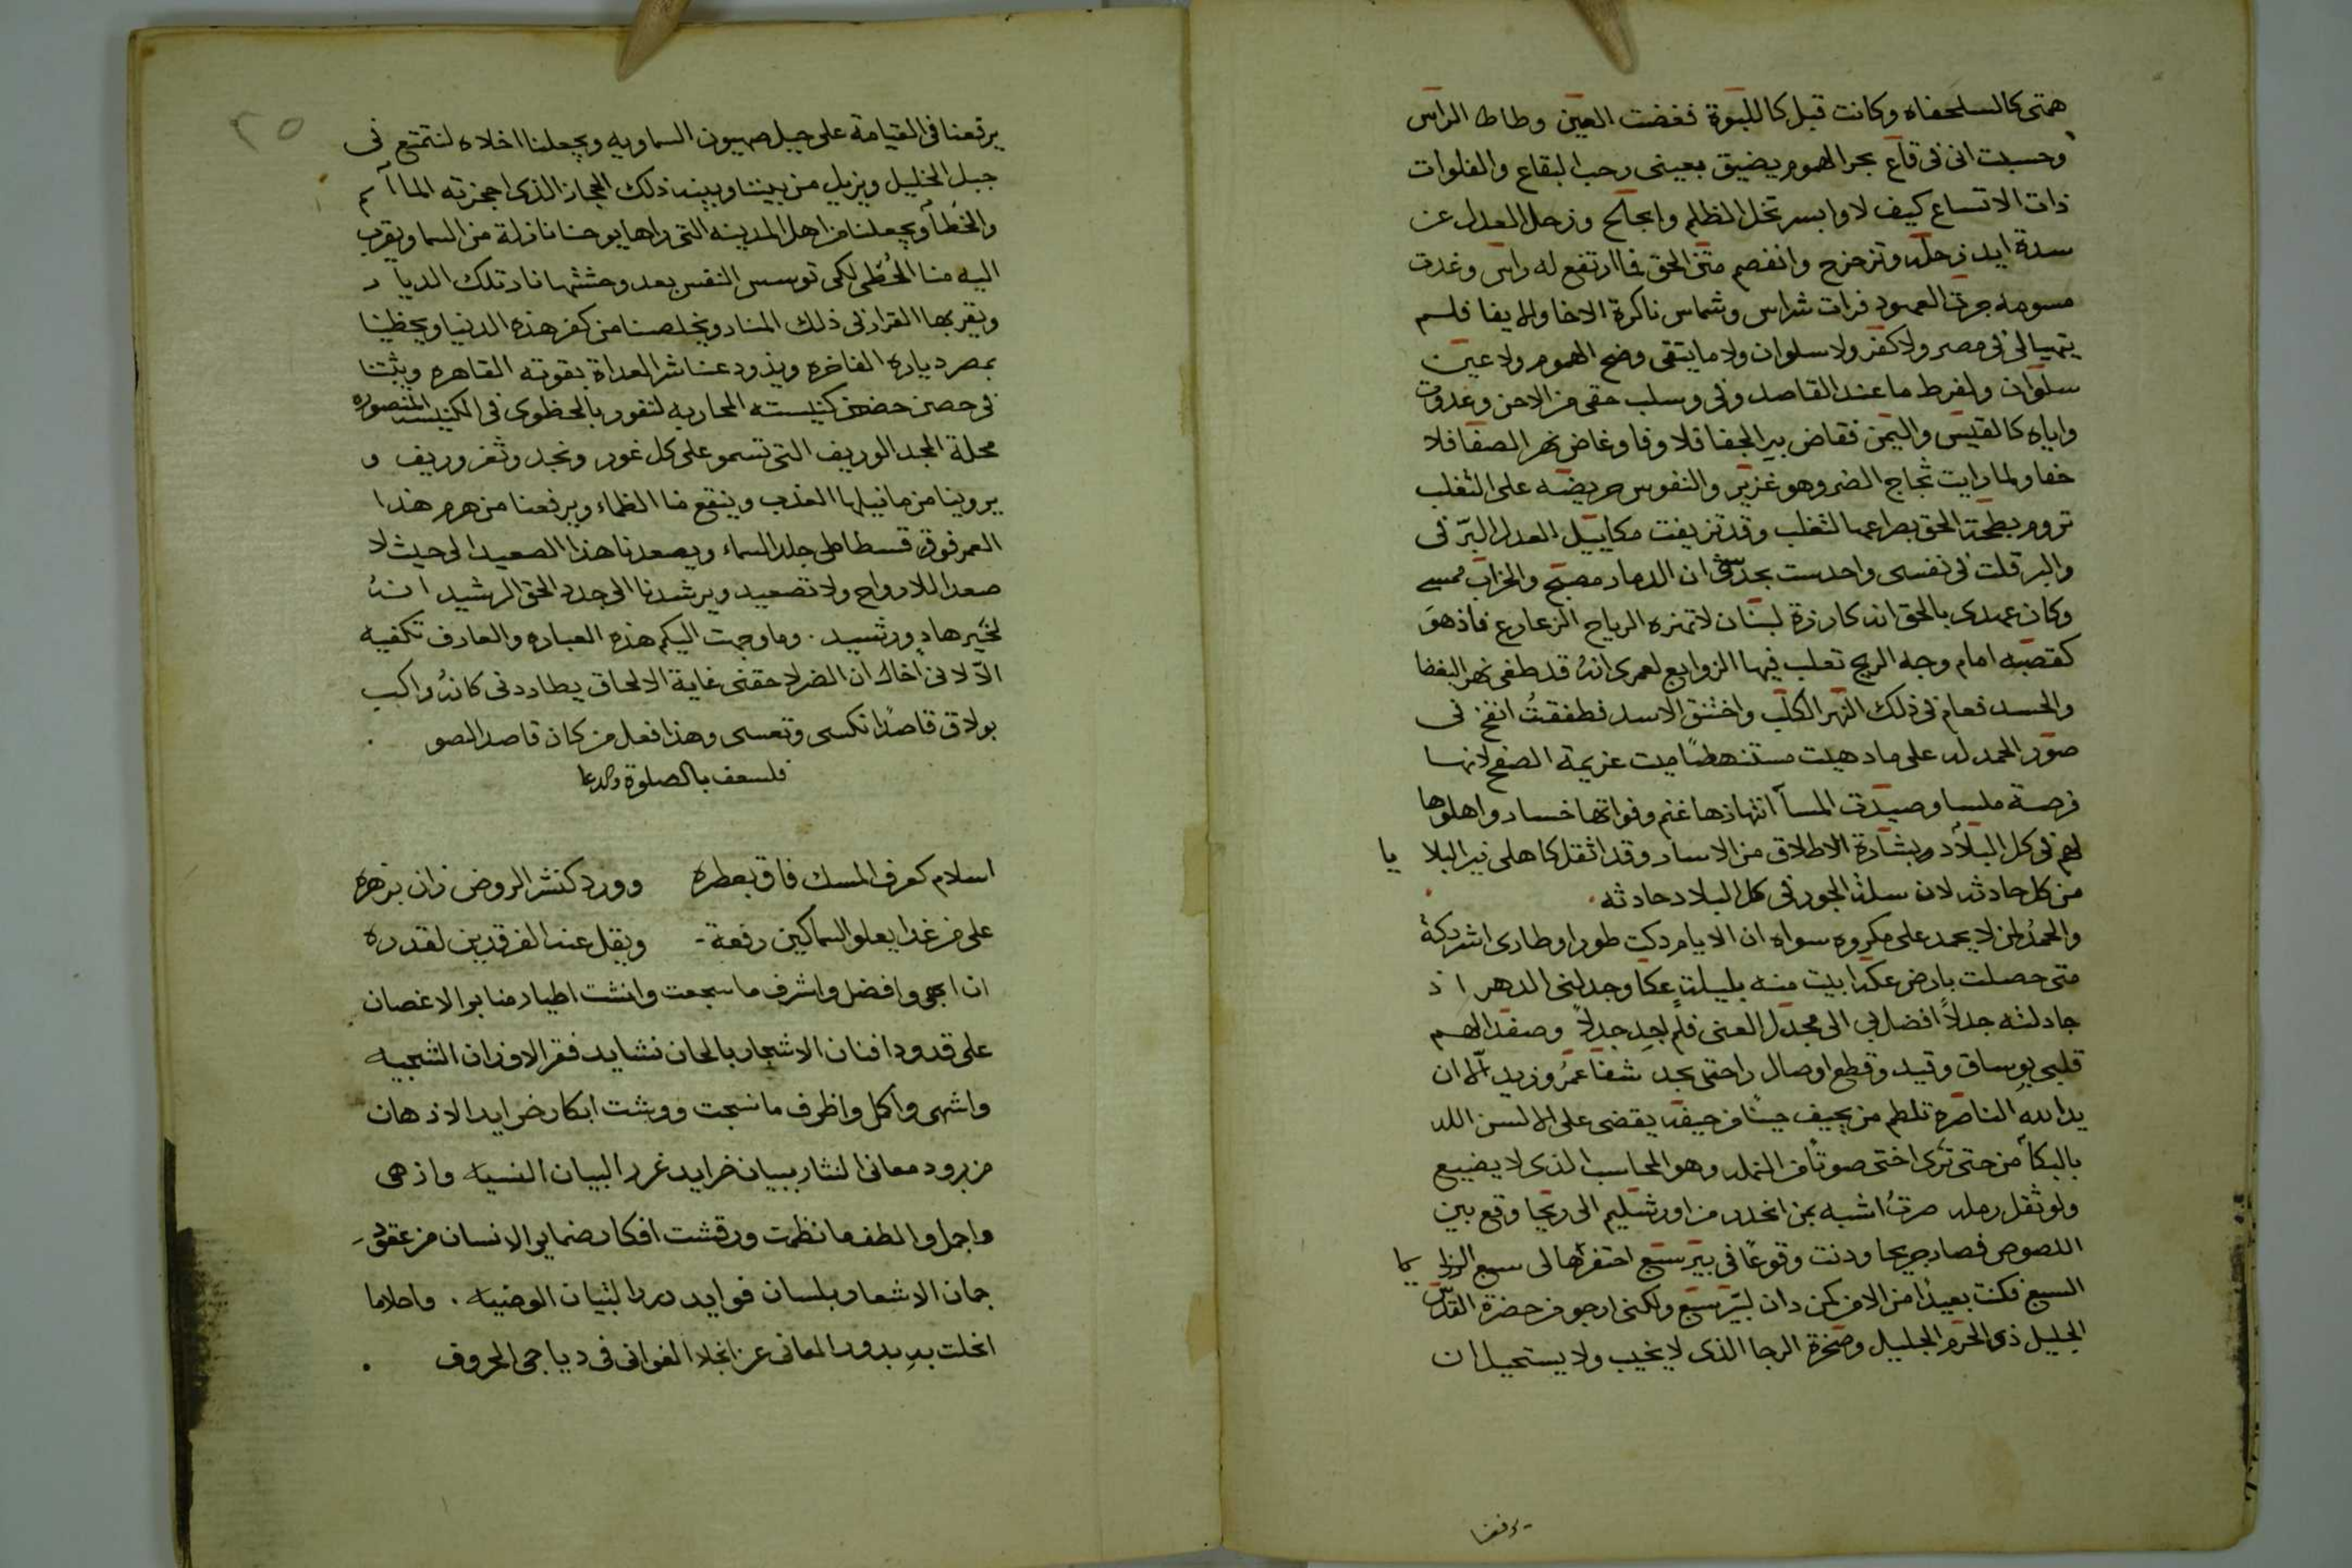 همتى كالسلحفاه وكانت قبل كاللبوة فغضت العين وطاطا الراس
وحسبت انى فى قاع بحر الهموم يضيق بعينى رحب البقاع والفلوات
ذات الاتساع كيف لا وابسر تخل الظلم وابجلح وزحل العدل عن
سدة ايد زحله وتزحزح وانفصم متن الحق فما ارتفع له راس وغدت
مسومه جرت العهود فرات شراس وشماس ناكرة الاخا والايفا فلم
يتهيا لى فى مصر ولا كفر ولا سلوان ولا ما يتقى وضح الهموم ولا عين
سلوان ولفرط ما عند القاصد وفى وسلب حقى من الاحن وغدوت
واياه كالقيس واليمن ففاض بير الجفا فلا وفا وغاض نهر الصفا فلا
خفا ولما رايت ثجاج الضر وهو غزير والنفوس حريضه على الثعلب
تروم بطحة الحق بصراعها لثعلب وقد تزيفت مكاييل العدل البر فى
والبر قلت فى نفسى واحدست بحدسى ان الدمار مصبح والخراب ممسى
وكان عهدى بالحق انه كارزة لبنان لا تهزه الرياح الزعازع فاذ هو
كقصبه امام وجه الريح تعلب فيها الزوابع لعمرى انه قد طغى نهر البغضا
والحسد فعام فى ذلك النهر الكلب واختنق الاسد فطفقت انفخ فى
صور الحمد له على ما دهيت مستنهضا ميت عزيمة الصفح لانها
فرصة ملسا وصيدت المسا انتهازها غنم وفواتها خسار واهلوها
لهم فى كل البلاد وبشارة الاطلاق من الاسار وقد اثقل كاهلى نير البلا يا
من كل حادثه لان سلة الجور فى كل البلاد حادثه
والحمد لمن لا يحمد على مكروه سواه ان الايام دكت طورا وطارى اشر دكة
متى حصلت بارض عكه ابيت منه بليلة عكا وجدلنى الدهر اذ
جادلته جدلا افضل بى الى مجدل العنى فلم اجد جدلا وصفد الهم
قلبى بوساق وقيد وقطع اوصال راحتى بجد شفا عمر وزيد الا ان
يد الله الناصره تلطم من يحيف حينا من حيفه يقضى على الالسن اللد
بالبكا من حتى ترى اختى صوتا من النمله وهو المحاسب الذى لا يضيع
ولو ثقل رمله صرت اشبه بمن انحدر من اورشليم الى ريحا وقع بين
اللصوص فصار جريحا ودنت وقوعا فى بير سبع احتفرها لى سبع الرزا يا
السبع فكنت بعيدا من الامن كمن دان لبير سبع ولكنى ارجو من حضرة القدس
الجليل ذى الحرم الجليل وصخرة الرجا الذى لا يخيب ولا يستحيل ان
يرفعنا
٢٥
يرفعنا فى القيامة على جبل صهيون السماويه ويجعلنا اخلاه لنتمتع فى
جبل الخليل ويزيل من بيننا وبينه ذلك الحجاز الذى احجزته الما آثم
والخطا ويجعلنا من اهل المدينه التى راها يوحنا نازلة من السما ويقرب
اليه منا الخطى لكى توسس النفس بعد وحشتها نار تلك الديار
ويقر بها القرار فى ذلك المنار ويخلصنا من كفر هذه الدنيا ويحظينا
بمصر دياره الفاخره ويذود عنا شر العداة بقوته القاهره ويثبتنا
فى حصن حضن كنيسته المحاربه لنفور بالحظوى فى الكنيسه المنصوره
محلة المجد الوريف التى تسمو على كل غور ونجد وثغر وريف و
يروينا من ما نيلها العذب وينقع منا الظماء ويرفعنا من هرم هذا
العمر فوق قسطاطى جلد السماء ويصعدنا هذا الصعيد الى حيث لا
صعدا للارواح ولا تصعيد ويرشدنا الى جدد الحق الرشيد انه
لخير هاد ورشيد . وما وجهت اليكم هذه العباره والعارف تكفيه
الا لانى اخاك ان الضر لاحقنى غاية الالحاق يطاردنى كانه راكب
بولاق قاصدا نكسى وتعسى وهذا فعل من كان قاصد السو
فلسعف بالصلوة والدعا
اسلام كعرف المسك فاق بعطره وورد كنشر الروض زان بزهره
على من غدا يعلو السماكين رفعة - ويقل عند الفرقدين لقدره
ان ابهى وافضل واشرف ما سجعت وانشت اطيار منابر الاغصان
على قدود افنان الاشجار بالحان نشايد فقر الاوزان الشجيه
واشهى واكل واظرف ما نسجت ووشت ابكار خرايد الاذهان
من برود معانى النثار ببيان خرايد غرر البيان السنيه واذهى
واجمل والطف ما نظمت ورقشت افكار ضماير الانسان من عقود
جمان الاشعار بلسان فوايد درر التبيان الوضيه . واحلاما
انجلت به بدور المعانى عن انجلا الغوانى فى دياجى الحروف .